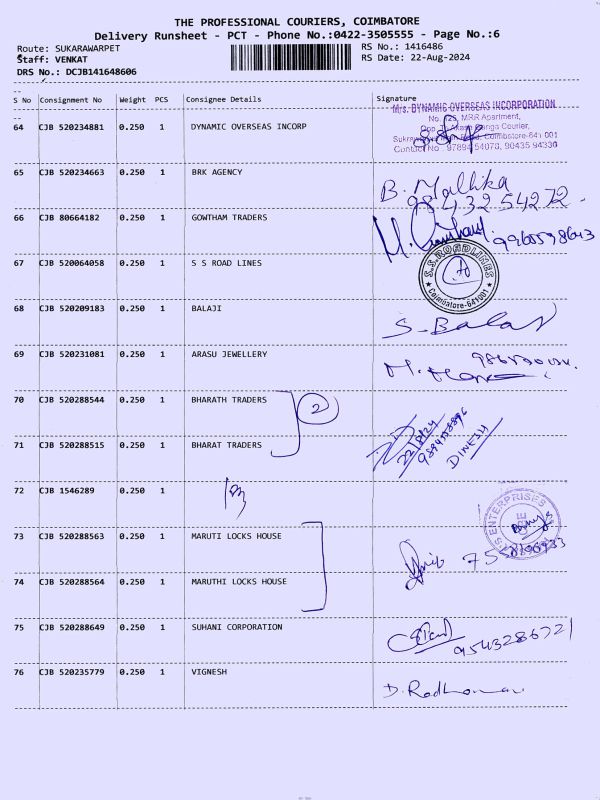 THE PROFESSIONAL COURIERS, COIMBATORE
Delivery Runsheet - PCT - Phone No.:0422-3505555 - Page No.:6
Route: SUKARAWARPET
RS No.: 1416486
Staff: VENKAT
RS Date: 22-Aug-2024
DRS No.: DCJB141648606
S No Consignment No Weight PCS Consignee Details Signature
M/s. DYNAMIC OVERSEAS INCORPORATION
64 CJB 520234881 0.250 1 DYNAMIC OVERSEAS INCORP
No. 123, MRR Apartment,
Coimbatore-641 001
Contact No : 97894 54078, 90435 94330
65 CJB 520234663 0.250 1 BRK AGENCY B. Mallika
9843254272
66 CJB 80664182 0.250 1 GOWTHAM TRADERS
67 CJB 520064058 0.250 1 S S ROAD LINES S.S. ROAD LINES
Coimbatore-641001
68 CJB 520209183 0.250 1 BALAJI S. Balaji
69 CJB 520231081 0.250 1 ARASU JEWELLERY
70 CJB 520288544 0.250 1 BHARATH TRADERS 2
71 CJB 520288515 0.250 1 BHARAT TRADERS 22/8/24
DINESH
72 CJB 1546289 0.250 1
ENTERPRISES
73 CJB 520288563 0.250 1 MARUTI LOCKS HOUSE
74 CJB 520288564 0.250 1 MARUTHI LOCKS HOUSE
75 CJB 520288649 0.250 1 SUHANI CORPORATION
9543286721
76 CJB 520235779 0.250 1 VIGNESH